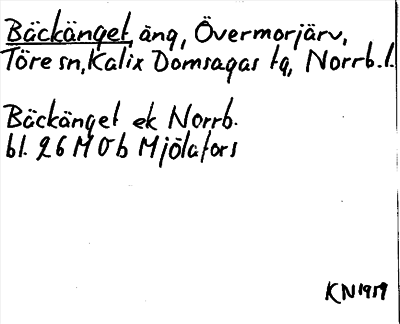 Bäckänget, äng, Övermorjärv,
Töre sn, Kalix Domsagas tg, Norrb.l.
Bäckänget ek Norrb.
bl. 26 M Ob Mjölafors
KN 1959